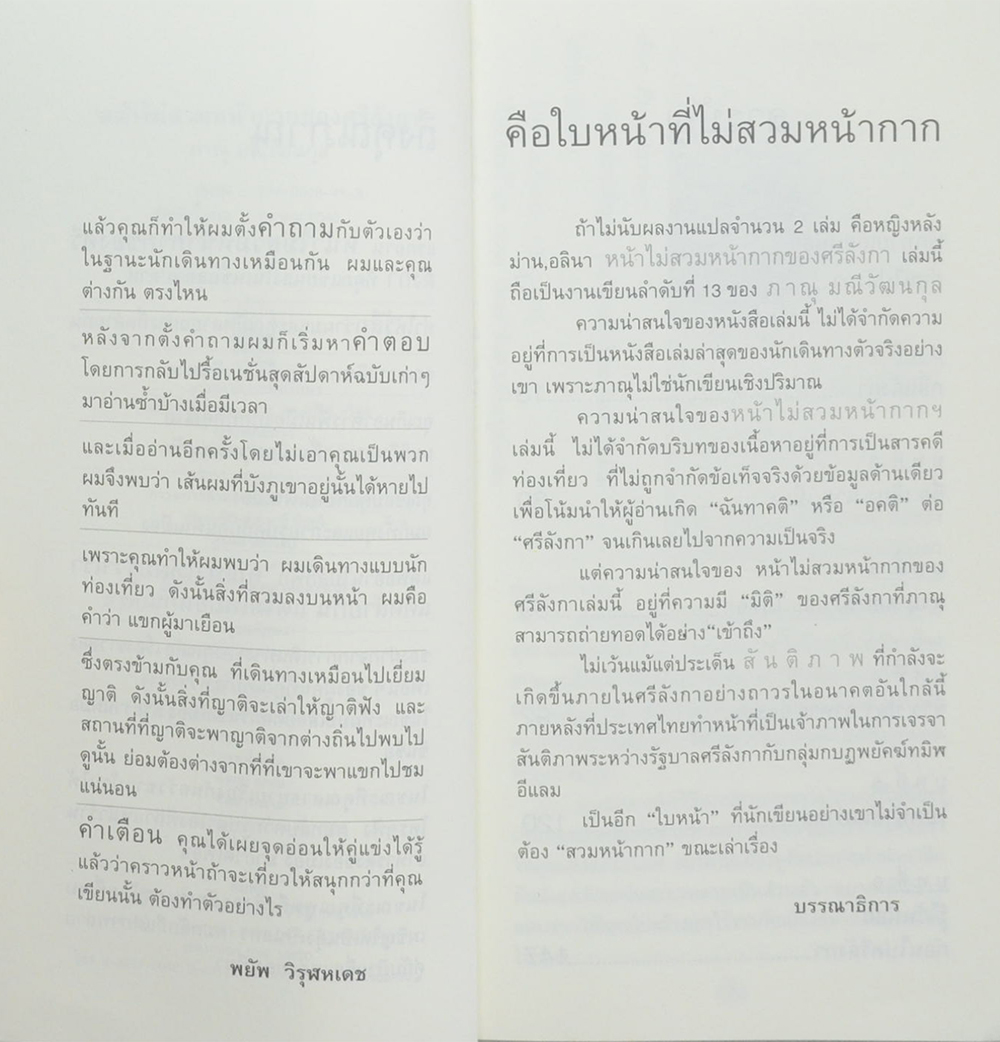 แล้วคุณก็ทำให้ผมตั้งคำถามกับตัวเองว่า
ในฐานะนักเดินทางเหมือนกัน ผมและคุณ
ต่างกัน ตรงไหน
หลังจากตั้งคำถามผมก็เริ่มหาคำตอบ
โดยการกลับไปรื้อเนชั่นสุดสัปดาห์ฉบับเก่าๆ
มาอ่านซ้ำบ้างเมื่อมีเวลา
และเมื่ออ่านอีกครั้งโดยไม่เอาคุณเป็นพวก
ผมจึงพบว่า เส้นผมที่บังภูเขาอยู่นั้นได้หายไป
ทันที
เพราะคุณทำให้ผมพบว่า ผมเดินทางแบบนัก
ท่องเที่ยว ดังนั้นสิ่งที่สวมลงบนหน้า ผมคือ
คำว่า แขกผู้มาเยือน
ซึ่งตรงข้ามกับคุณ ที่เดินทางเหมือนไปเยี่ยม
ญาติ ดังนั้นสิ่งที่ญาติจะเล่าให้ญาติฟัง และ
สถานที่ที่ญาติจะพาญาติจากต่างถิ่นไปพบไป
ดูนั้น ย่อมต้องต่างจากที่ที่เขาจะพาแขกไปชม
แน่นอน
คำเตือน คุณได้เผยจุดอ่อนให้คู่แข่งได้รู้
แล้วว่าคราวหน้าถ้าจะเที่ยวให้สนุกกว่าที่คุณ
เขียนนั้น ต้องทำตัวอย่างไร
พยัพ วิรุฬหเดช
คือใบหน้าที่ไม่สวมหน้ากาก
ถ้าไม่นับผลงานแปลจำนวน 2 เล่ม คือหญิงหลัง
ม่าน,อลินา หน้าไม่สวมหน้ากากของศรีลังกา เล่มนี้
ถือเป็นงานเขียนลำดับที่ 13 ของ ภาณุ มณีวัฒนกุล
ความน่าสนใจของหนังสือเล่มนี้ ไม่ได้จำกัดความ
อยู่ที่การเป็นหนังสือเล่มล่าสุดของนักเดินทางตัวจริงอย่าง
เขา เพราะภาณุไม่ใช่นักเขียนเชิงปริมาณ
ความน่าสนใจของหน้าไม่สวมหน้ากากฯ
เล่มนี้ ไม่ได้จำกัดบริบทของเนื้อหาอยู่ที่การเป็นสารคดี
ท่องเที่ยว ที่ไม่ถูกจำกัดข้อเท็จจริงด้วยข้อมูลด้านเดียว
เพื่อโน้มนำให้ผู้อ่านเกิด “ฉันทาคติ” หรือ “อคติ” ต่อ
“ศรีลังกา” จนเกินเลยไปจากความเป็นจริง
แต่ความน่าสนใจของ หน้าไม่สวมหน้ากากของ
ศรีลังกาเล่มนี้ อยู่ที่ความมี “มิติ” ของศรีลังกาที่ภาณุ
สามารถถ่ายทอดได้อย่าง“เข้าถึง”
ไม่เว้นแม้แต่ประเด็น สันติภาพ ที่กำลังจะ
เกิดขึ้นภายในศรีลังกาอย่างถาวรในอนาคตอันใกล้นี้
ภายหลังที่ประเทศไทยทำหน้าที่เป็นเจ้าภาพในการเจรจา
สันติภาพระหว่างรัฐบาลศรีลังกากับกลุ่มกบฏพยัคฆ์ทมิฬ
อีแลม
เป็นอีก “ใบหน้า” ที่นักเขียนอย่างเขาไม่จำเป็น
ต้อง “สวมหน้ากาก” ขณะเล่าเรื่อง
บรรณาธิการ